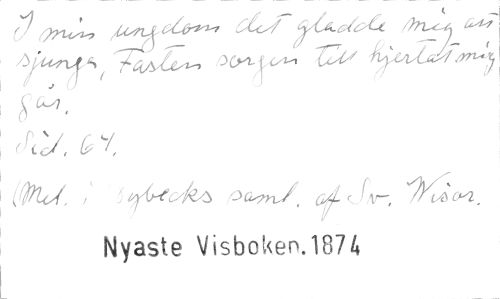 I min ungdom det gladde mig att
sjunga, Fasten sorgen till hjertat mig
går.
Sid. 64.
(Mel. i Dybecks saml. af Sv. Wisor.
Nyaste Visboken.1874